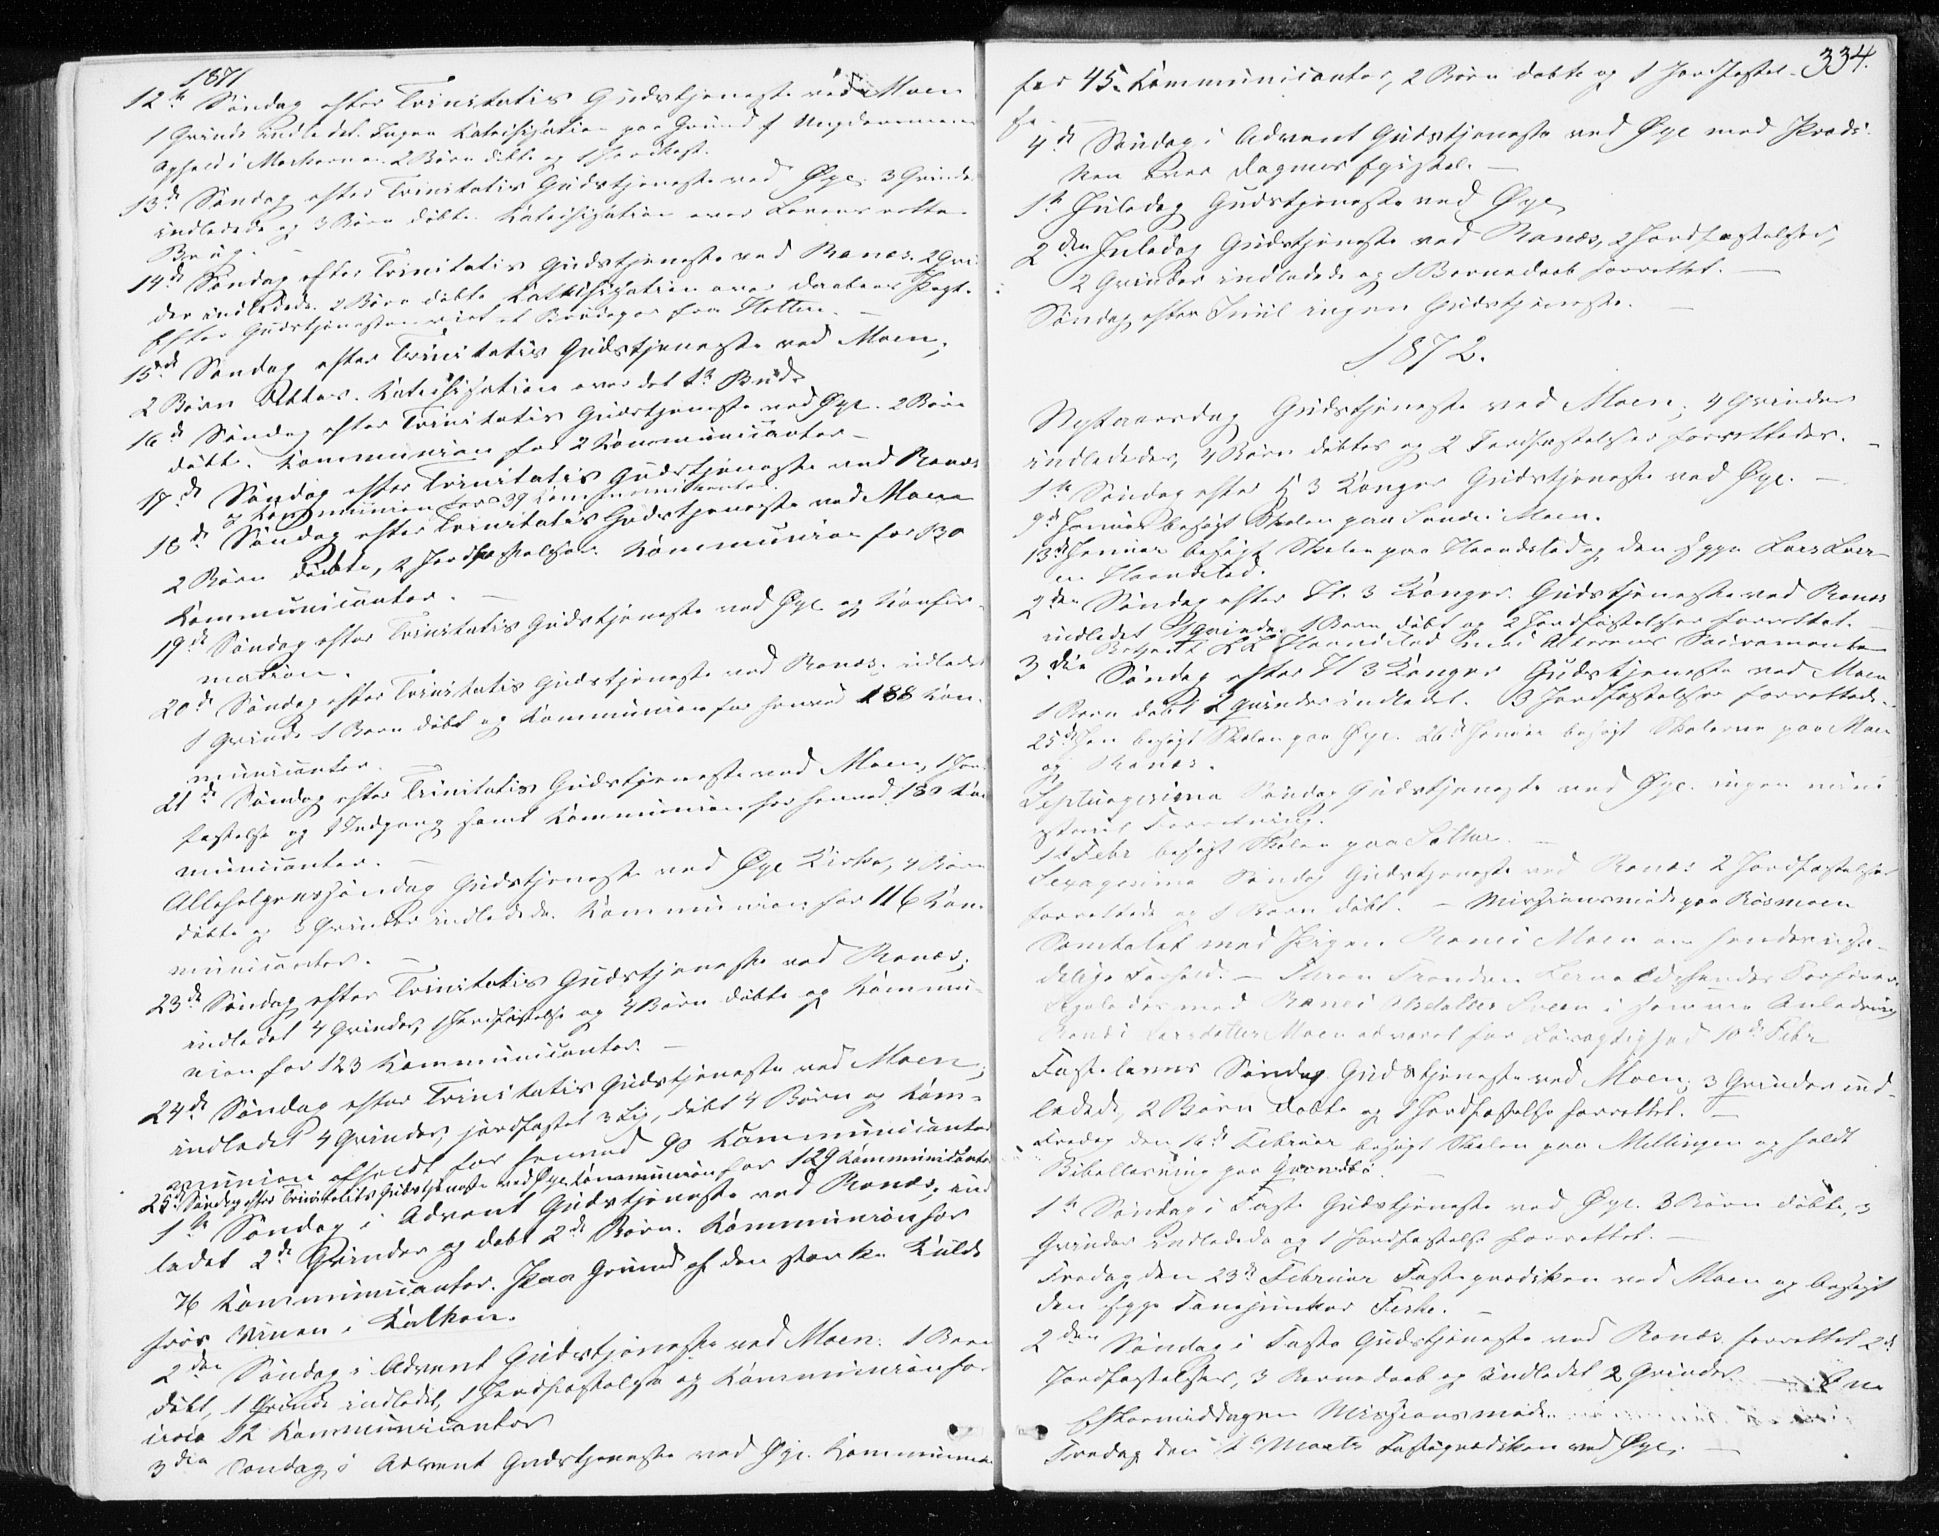 1871
12te Søndag efter Trinitatis Gudstjeneste ved Moen
1 Qvinde indledet. Ingen Katechisation paa Grund af Ungdommens
Ophold i Markerne. 2 Børn døbte og 1 Jordfæst.
13de Søndag efter Trinitatis Gudstjeneste ved Øye, 3 Qvinder
indledede og 3 Børn døbte. Katechisation over Lovens rette
Brug.
14de Søndag efter Trinitatis Gudstjeneste ved Ranæs. 2 Qvin
der indledede. 2 Børn døbte. Katechisation over Daabens Pagt.
Efter Gudstjenesten viet et Brudepar fra Holten.
15de Søndag efter Trinitatis Gudstjeneste ved Moen,
2 Børn døbtes. Katechisation over det 1te Bud.
16de Søndag efter Trinitatis Gudstjeneste ved Øye. 2 Børn
døbte. Kommunion for 2 Kommunicanter –
17de Søndag efter Trinitatis Gudstjeneste ved Ranæs
og Kommunion for 39 Kommunicanter.
18de Søndag efter Trinitatis Gudstjeneste ved Moen
2 Børn døbte, 2 Jordfæstelser. Kommunion for 130
Kommunicanter. –
19de Søndag efter Trinitatis Gudstjeneste ved Øye og Konfir-
mation.
20de Søndag efter Trinitatis Gudstjeneste ved Ranæs; indledet
1 Qvinde 1 Barn døbt og Kommunion for henved 188 Kom-
municanter. –
21de Søndag efter Trinitatis Gudstjeneste ved Moen, 1 Jord
fæstelse og 1 Indgang samt Kommunion for henved 130 Kom
municanter. –
Allehelgenssøndag Gudstjeneste ved Øye Kirke, 4 Børn
døbte og 3 Qvinder indledede. Kommunion for 116 Kom
municanter. –
23de Søndag efter Trinitatis Gudstjeneste ved Ranæs;
indledet 4 Qvinder, 1 Jordfæstelse og 4 Børn døbte og Kommu-
nion for 123 Kommunicanter. –
24de Søndag efter Trinitatis Gudstjeneste ved Moen,
indledet 4 Qvinder, jordfæstet 3 Lig, døbt 4 Børn og Kom-
munion afholdt for henved 90 Kommunicanter
25de Søndag efter Trinitatis Gudstjeneste ved Øye Kommunion for 129 Kommunicanter
1te Søndag i Advent Gudstjeneste ved Ranæs, ind
ledet 2de Qvinder og døbt 2de Børn. Kommunion for
76 Kommunicanter. Paa Grund af den stærke Kulde
frøs Vinen i Kalken.
2den Søndag i Advent Gudstjeneste ved Moen. 1 Barn
døbt, 1 Qvinde indledet, 1 Jordfæstelse og Kommunion for
circa 12 Kommunicanter
3die Søndag i Advent Gudstjeneste ved Øye. Kommunion
334.
for 45 Kommunicanter, 2 Børn døbte og 1 Jordfæstel-
se. –
4de Søndag i Advent Gudstjeneste ved Øye med Prædi-
ken over Dagens Epistel. –
1te Juledag Gudstjeneste ved Øye
2den Juledag Gudstjeneste ved Ranæs, 2 Jordfæstelser,
2 Qvinder indledede og 1 Barnedaab forrettet. –
Søndag efter Juul ingen Gudstjeneste. –
1872.
Nytaarsdag Gudstjeneste ved Moen; 4 Qvinder
indlededes, 4 Børn døbtes og 2 Jordfæstelser forrettedes. –
1te Søndag efter H 3 Konger Gudstjeneste ved Øye. –
9de Januar besøgt Skolen paa Søndre Moen.
13de Januar besøgt Skolen paa Haandstad og den syge Lars Lars
en Haandstad.
2den Søndag efter H. 3 Konger. Gudstjeneste ved Ranæs
indledet 1 Qvinde. 1 Barn døbt og 2 Jordfæstelser forrettet. –
Betjent Haandstad med Alterens Sacramente
3die Søndag efter H 3 Konger Gudstjeneste ved Moen
1 Barn døbt 2 Qvinder indledet. 3 Jordfæstelser forrettede.
25de Jan besøgt Skolen paa Øye. 26de Januar besøgt Skolerne paa Moen
og Ranæs.
Septuagesima Søndag Gudstjeneste ved Øye. ingen mini
steriel Forretning.
1te Febr besøgt Skolen paa Sæther. –
Sexagesima Søndag Gudstjeneste ved Ranæs 2 Jordfæstelser
forrettede og 1 Barn døbt. – Missionsmøde paa Røsmoen
Samtalet med Pigen Randi Moen om hendes usæ-
delige Forhold. –
Ligeledes med i samme Anledning
Randi Larsdatter Moen advaret for Løsagtighed 10de Febr
Fastelavns Søndag Gudstjeneste ved Moen; 3 Qvinder ind-
ledede, 2 Børn døbte og 1 Jordfæstelse forrettet. –
Fredag den 16de Februar besøgt Skolen paa Mellingen og holdt
Bibellæsning paa –
1te Søndag i Faste Gudstjeneste ved Øye. 3 Børn døbte, 3
Qvinder indledede og 1 Jordfæstelse forrettet. –
Fredag den 23de Februar Fasteprædiken ved Moen og besøgt
den syge Fanejunker Feske. –
2den Søndag i Faste Gudstjeneste ved Ranæs forrettet 2de
Jordfæstelser, 3 Barnedaab og indledet 2 Qvinder. – Om
Eftermiddagen Missionsmøde
Fredag den 1te Marts Fasteprædiken ved Øye. –